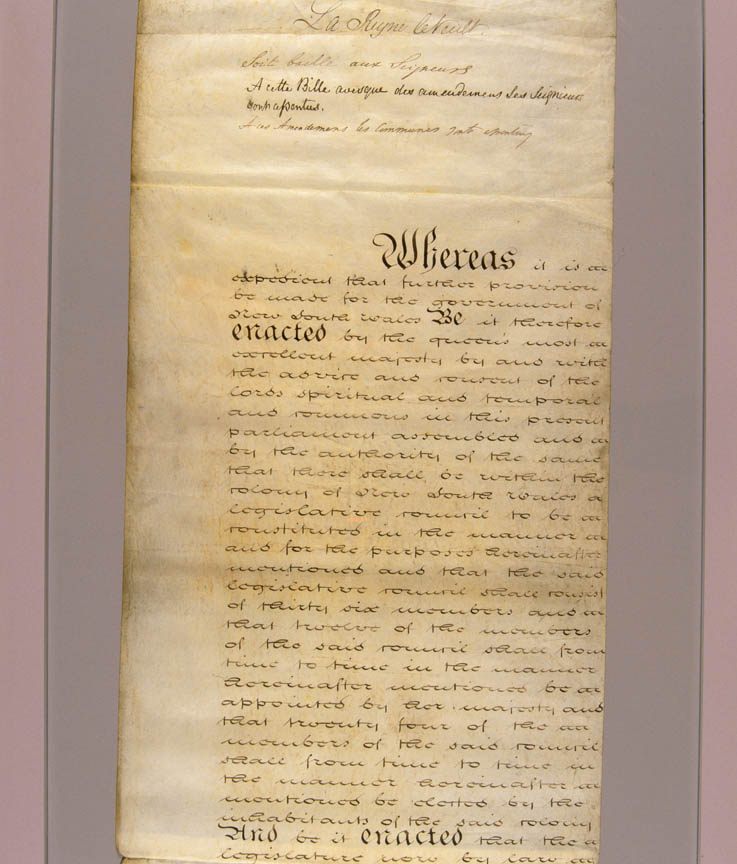 La Reyne le Veult.
Soit baillé aux Seigneurs
A cette Bille avecque des amendemens Les Seigneurs
sont assentus.
A ces Amendemens les Communes sont
Whereas it is
expedient that further provision
be made for the government of
New South Wales Be it therefore
enacted by the queen's most
excellent majesty by and with
the advice and consent of the
lords spiritual and temporal
and commons in this present
parliament assembled and
by the authority of the same
that there shall be within the
colony of New South Wales a
legislative council to be
constituted in the manner
and for the purposes hereinafter
mentioned and that the said
legislative council shall consist
of thirty six members and
that twelve of the members
of the said council shall from
time to time in the manner
hereinafter mentioned be
appointed by her majesty and
that twenty four of the
members of the said council
shall from time to time in
the manner hereinafter
mentioned be elected by the
inhabitants of the said colony
And be it enacted that the
legislature now by law